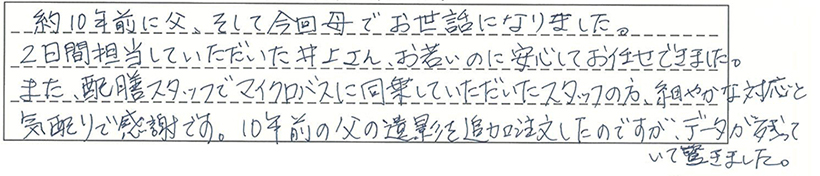 約10年前に父、そして今回母でお世話になりました。
2日間担当していただいた井上さん、お若いのに安心してお任せできました。
また、配膳スタッフでマイクロバスに同乗していただいたスタッフの方、細やかな対応と
気配りで感謝です。10年前の父の遺影を追加注文したのですが、データが残って
いて驚きました。